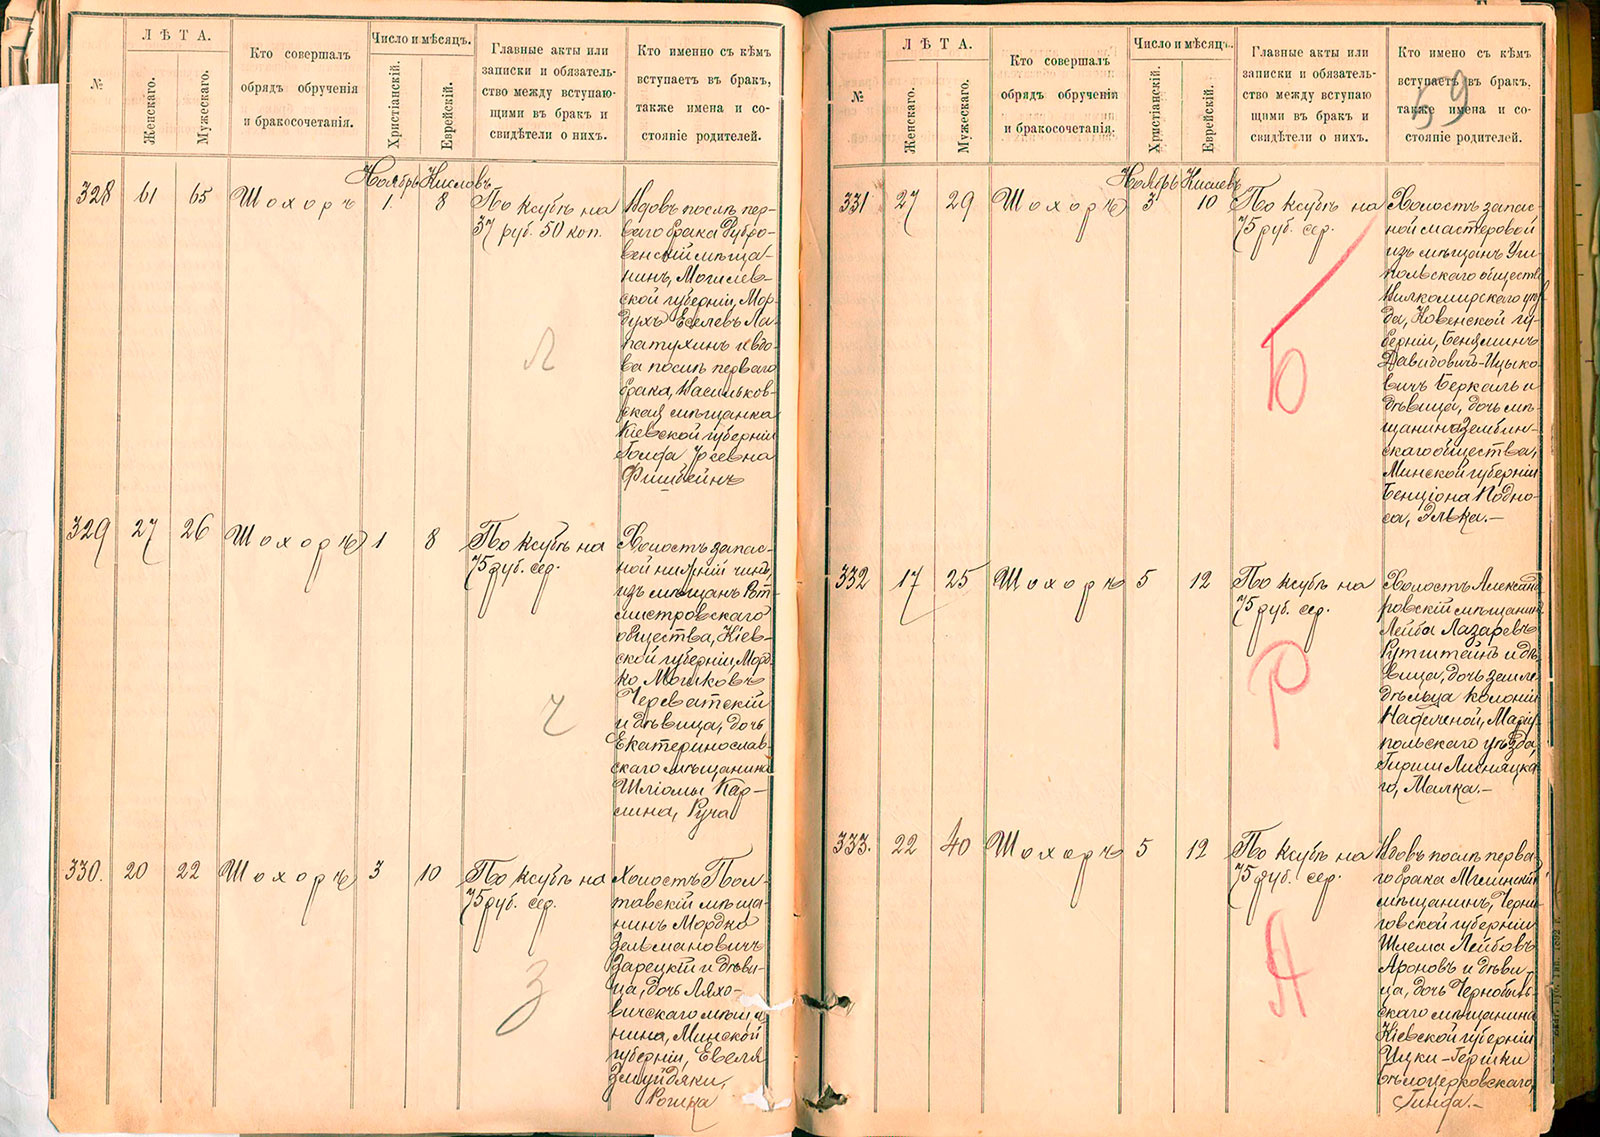 №
ЛѢТА.
Женскаго.
Мужескаго.
Кто совершалъ
обрядъ обрученія
и бракосочетанія.
Число и мѣсяцъ.
Христіанскій.
Еврейскій.
Главные акты или
записки и обязатель-
ство между вступаю-
щими въ бракъ и
свидѣтели о нихъ.
Кто именно съ кѣмъ
вступаетъ въ бракъ,
также имена и со-
стояніе родителей.
Ноябрь Кислевъ
328 61 65 Шохоръ 1 8
По ксубѣ на
37 руб. 50 коп.
Л
Вдовъ послѣ пер-
ваго брака Дубро-
венскій мѣща-
нинъ, Могилев-
ской губерніи, Мор-
духъ Еселевъ Ла-
патухинъ и вдо-
ва послѣ перваго
брака, Васильков-
ская мѣщанка
Кіевской губерніи
Голда
Фишбейнъ
329 27 26 Шохоръ 1 8
По ксубѣ на
75 руб. сер.
Ч
Холостъ запас-
ной нижній чинъ,
изъ мѣщанъ Рот-
мистровскаго
общества, Кіев-
ской губерніи, Морд-
ко, Мошковъ
Черватскій
и дѣвица, дочь
Екатеринослав-
скаго мѣщанина
Шліомы Кар-
лина,
330. 20 22 Шохоръ 3 10
По ксубѣ на
75 руб. сер.
З
Холостъ Пол-
тавскій мѣща-
нинъ Мордко
Зельмановичъ
Зарецкій и дѣви-
ца, дочь Ляхо-
вичскаго мѣща-
нина, Минской
губерніи, Евеля
Змуйдяки,
59
№
ЛѢТА.
Женскаго.
Мужескаго.
Кто совершалъ
обрядъ обрученія
и бракосочетанія.
Число и мѣсяцъ.
Христіанскій.
Еврейскій.
Главные акты или
записки и обязатель-
ство между вступаю
щими въ бракъ и
свидѣтели о нихъ.
Кто имено съ кѣмъ
вступаетъ въ бракъ,
также имена и со-
стояніе родителей.
Ноябрь Кислевъ
331 27 29 Шохоръ 3 10
По ксубѣ на
75 руб. сер.
Б
Холостъ запас-
ной мастеровой
изъ мѣщанъ Уш-
польскаго общества
Вилкомирскаго уѣз-
да, Ковенской гу-
берніи, Беняминъ
Давидовичъ-Ицыко-
вичъ Беркаль и
дѣвица, дочь мѣ-
щанина Земблин-
скаго общества,
Минской губерніи
Бенціона Подно-
са, Элька.-
332 17 25 Шохоръ 5 12
По ксубѣ на
75 руб. сер.
Р
Холостъ Александ-
ровскій мѣщанинъ
Лейба Лазаревъ
Рутштейнъ и дѣ-
вица, дочь земле-
дѣльца колоніи
Надежной, Маріу-
польскаго уѣзда,
Гирши Лисняцка-
го, Малка.-
333. 22 40 Шохоръ 5 12
По ксубѣ на
75 руб. сер.
А
Вдовъ послѣ перва-
го брака Мглинскій
мѣщанинъ, Черни-
говской губерніи
Шлема Лейбовъ
Ароновъ и дѣви-
ца, дочь Чернобыль-
скаго мѣщанина
Кіевской губерніи
Ицки-Гершки
Бѣлоцерковскаго,
Гинда.-